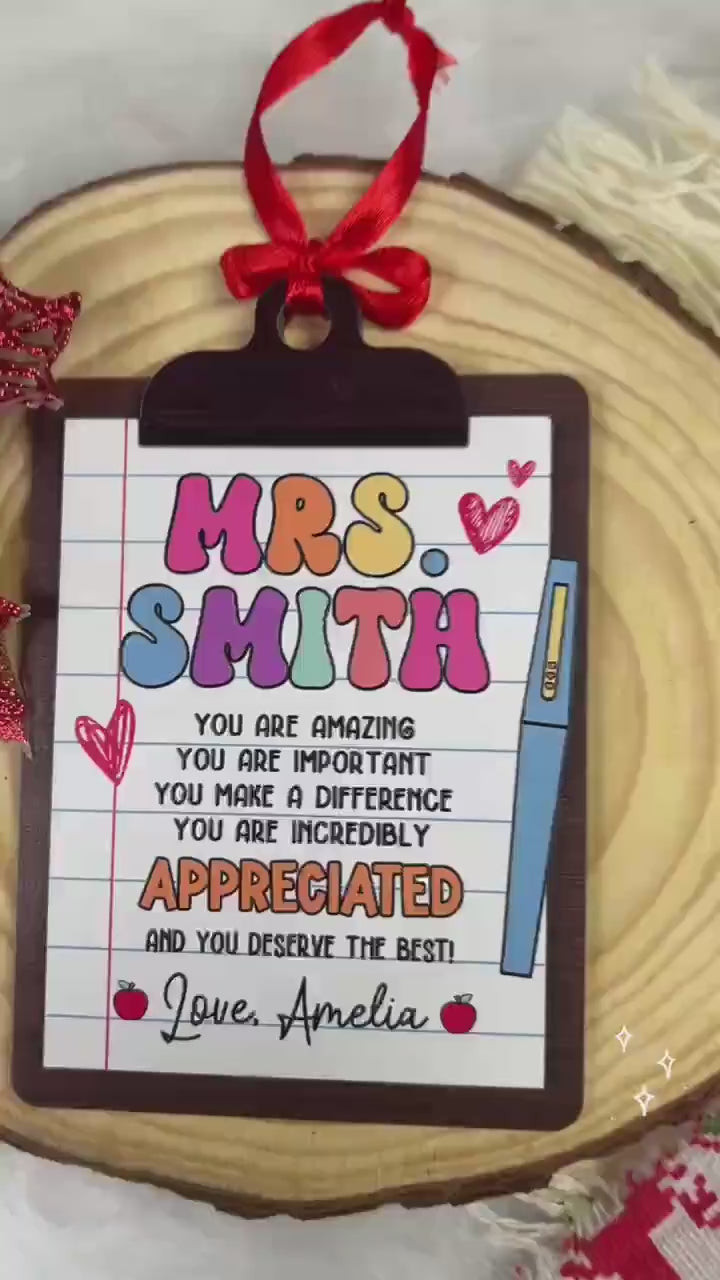 MRS.
SMITH
YOU ARE AMAZING
YOU ARE IMPORTANT
YOU MAKE A DIFFERENCE
YOU ARE INCREDIBLY
APPRECIATED
AND YOU DESERVE THE BEST!
Love, Amelia